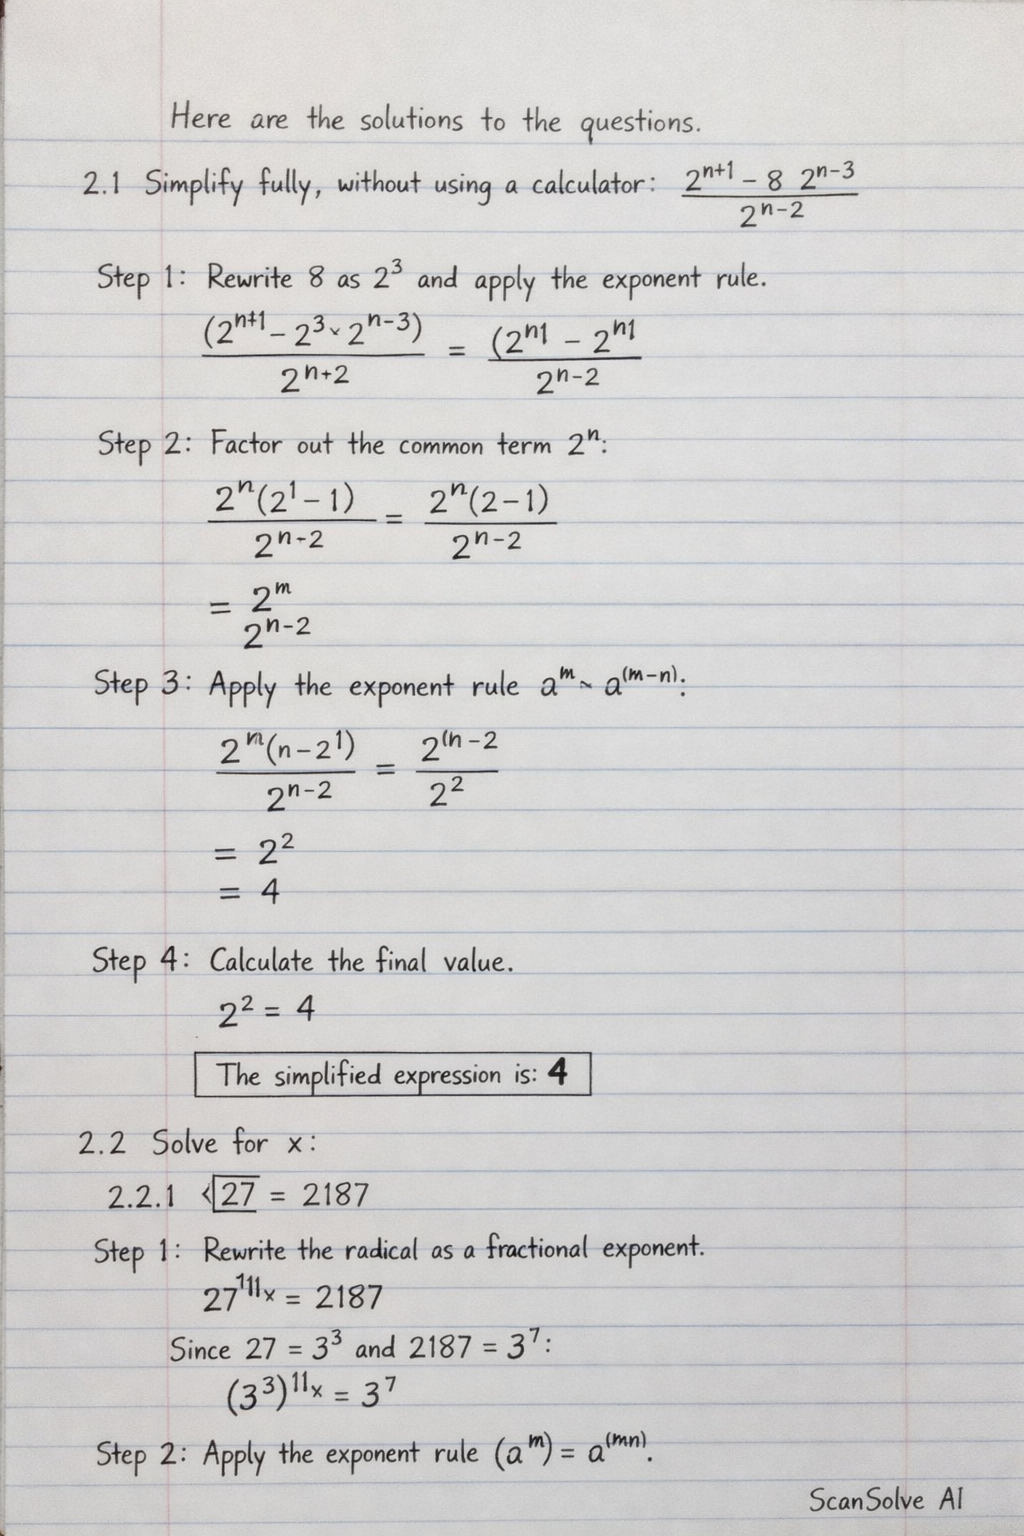 Here are the solutions to the questions.
2.1 Simplify fully, without using a calculator: 2ⁿ⁺¹ – 8 2ⁿ⁻³
2ⁿ⁻²
Step 1: Rewrite 8 as 2³ and apply the exponent rule.
(2ⁿ⁺¹ – 2³ × 2ⁿ⁻³) = (2ⁿ¹ – 2ⁿ¹
2ⁿ⁺² 2ⁿ⁻²
Step 2: Factor out the common term 2ⁿ:
2ⁿ(2¹ – 1) = 2ⁿ(2 – 1)
2ⁿ⁻² 2ⁿ⁻²
= 2ᵐ
2ⁿ⁻²
Step 3: Apply the exponent rule aᵐ ~ a⁽ᵐ⁻ⁿ⁾:
2ᵐ(n – 2¹) = 2⁽ⁿ⁻²
2ⁿ⁻² 2²
= 2²
= 4
Step 4: Calculate the final value.
2² = 4
The simplified expression is: 4
2.2 Solve for x:
2.2.1 √27 = 2187
Step 1: Rewrite the radical as a fractional exponent.
27¹¹¹x = 2187
Since 27 = 3³ and 2187 = 3⁷:
(3³)¹¹x = 3⁷
Step 2: Apply the exponent rule (aᵐ) = a⁽ᵐⁿ⁾.
ScanSolve AI